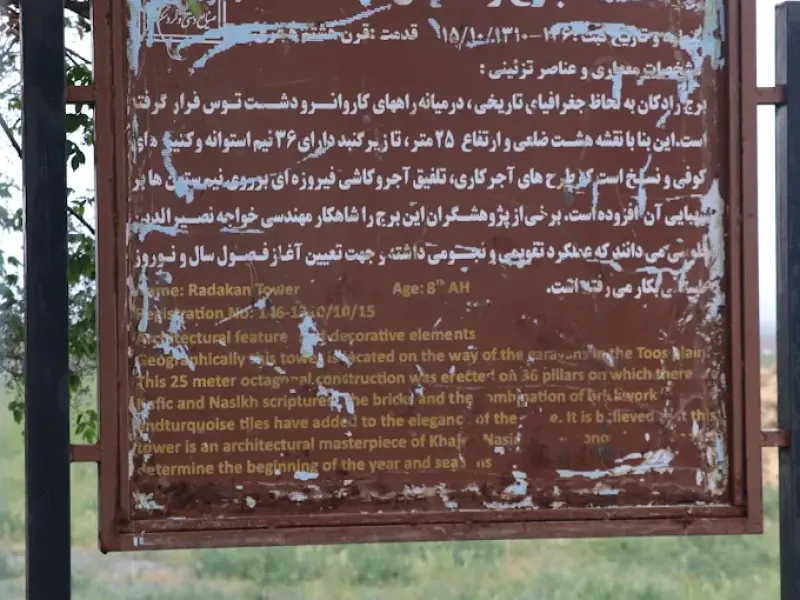 صنایع دستی و گردشگری
برج
و تاریخ ثبت : ۱۴۶-۱۳۱۰/۱۰/۱۵ قدمت :قرن هشتم هجری
مشخصات معماری و عناصر تزئینی :
برج رادکان به لحاظ جغرافیای تاریخی ، درمیانه راههای کاروانرو دشت توس قرار گرفته
است.این بنا با نقشه هشت ضلعی و ارتفاع ۲۵ متر، تا زیر گنبد دارای ۳۶ نیم استوانه و کتیبه های
کوفی و نسخ است که طرح های آجرکاری، تلفیق آجر وکاشی فیروزه ای بر روی نیم ستون ها بر
زیبایی آن افزوده است. برخی از پژوهشگران این برج را شاهکار مهندسی خواجه نصیرالدین
طوسی می دانند که عملکرد تقویمی و نجومی داشته و جهت تعیین آغاز فصول سال و نوروز
بکار می رفته است.
Name: Radakan Tower Age: 8th AH
Registration No: 146-1310/10/15
Architectural feature and decorative elements
Geographically this tower is located on the way of the caravans in the Toos plain
This 25 meter octagonal construction was erected on 36 pillars on which there
Kufic and Nasikh scriptures, the bricks and the combination of brickwork
andturquoise tiles have added to the elegance of the . It is believed that this
tower is an architectural masterpiece of Khaje Nasir
determine the beginning of the year and seasons